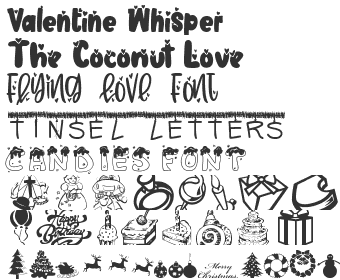 Valentine Whisper
The Coconut Love
Flying Love Font
TINSEL LETTERS
CANDIES FONT
Happy Birthday
Merry Christmas